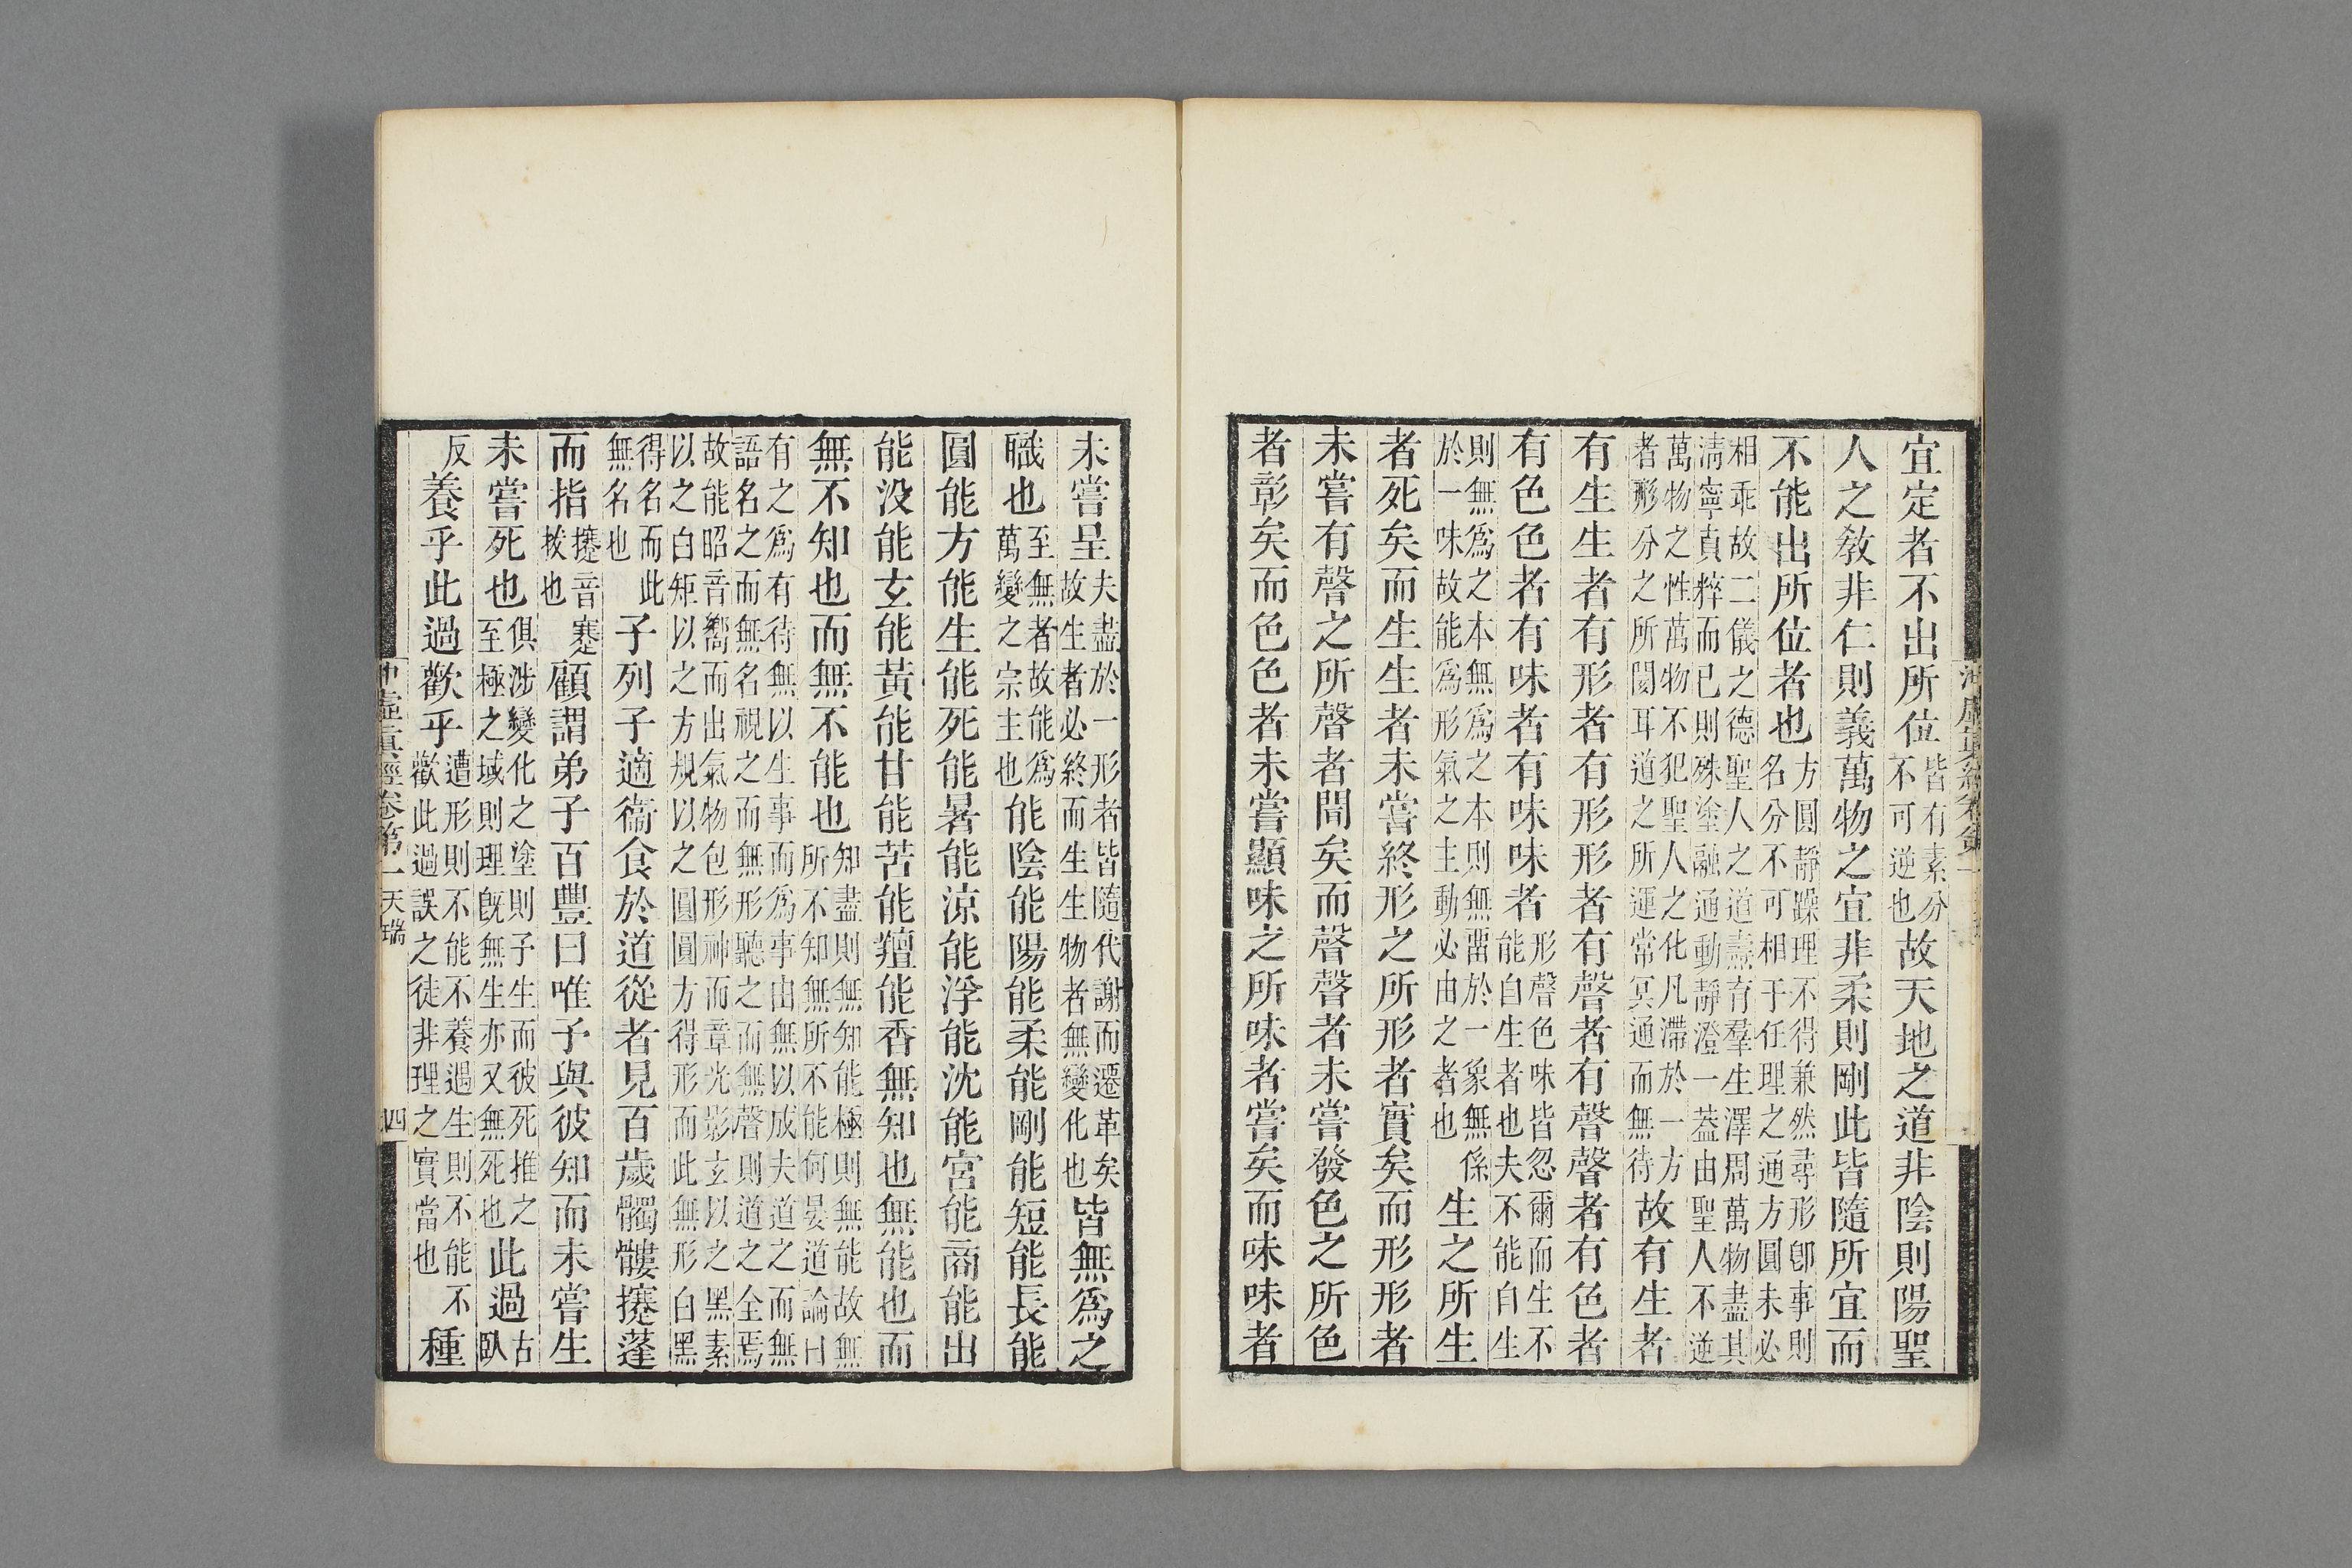 宜定者不出所位皆有素分不可逆也故天地之道非陰則陽聖
人之教非仁則義萬物之宜非柔則剛此皆隨所宜而
不能出所位者也方圓靜躁理不得兼然尋形卽事則名分不可相干任理之通方圓未必
相乖故二儀之德聖人之道燾育羣生澤周萬物盡其清寧貞粹而已則殊塗融通動靜澄一蓋由聖人不逆
萬物之性萬物不犯聖人之化凡滯於一方者形分之所閡耳道之所運常冥通而無待故有生者
有生生者有形者有形形者有聲者有聲聲者有色者
有色色者有味者有味味者形聲色味皆忽爾而生不能自生者也夫不能自生
則無爲之本無爲之本則無留於一象無係於一味故能爲形氣之主動必由之者也生之所生
者死矣而生生者未嘗終形之所形者實矣而形形者
未嘗有聲之所聲者聞矣而聲聲者未嘗發色之所色
者彰矣而色色者未嘗顯味之所味者嘗矣而味味者
未嘗呈夫盡於一形者皆隨代謝而遷革矣故生者必終而生生物者無變化也皆無爲之
職也至無者故能爲萬變之宗主也能陰能陽能柔能剛能短能長能
圓能方能生能死能暑能涼能浮能沈能宮能商能出
能没能玄能黃能甘能苦能羶能香無知也無能也而
無不知也而無不能也知盡則無知能極則無能故無所不知無所不能何晏道論曰
有之爲有待無以生事而爲事由無以成夫道之而無語名之而無名視之而無形聽之而無聲則道之全焉
故能昭音嚮而出氣物包形神而章光影玄以之黑素以之白矩以之方規以之圓圓方得形而此無形白黑
得名而此無名也子列子適衞食於道從者見百歲髑髏攓蓬
而指攓音蹇拔也顧謂弟子百豐曰唯予與彼知而未嘗生
未嘗死也俱涉變化之塗則子生而彼死推之至極之域則理旣無生亦又無死也此過古臥
反養乎此過歡乎遭形則不能不養遇生則不能不歡此過誤之徒非理之實當也種
沖虛眞經卷第一 天瑞 四